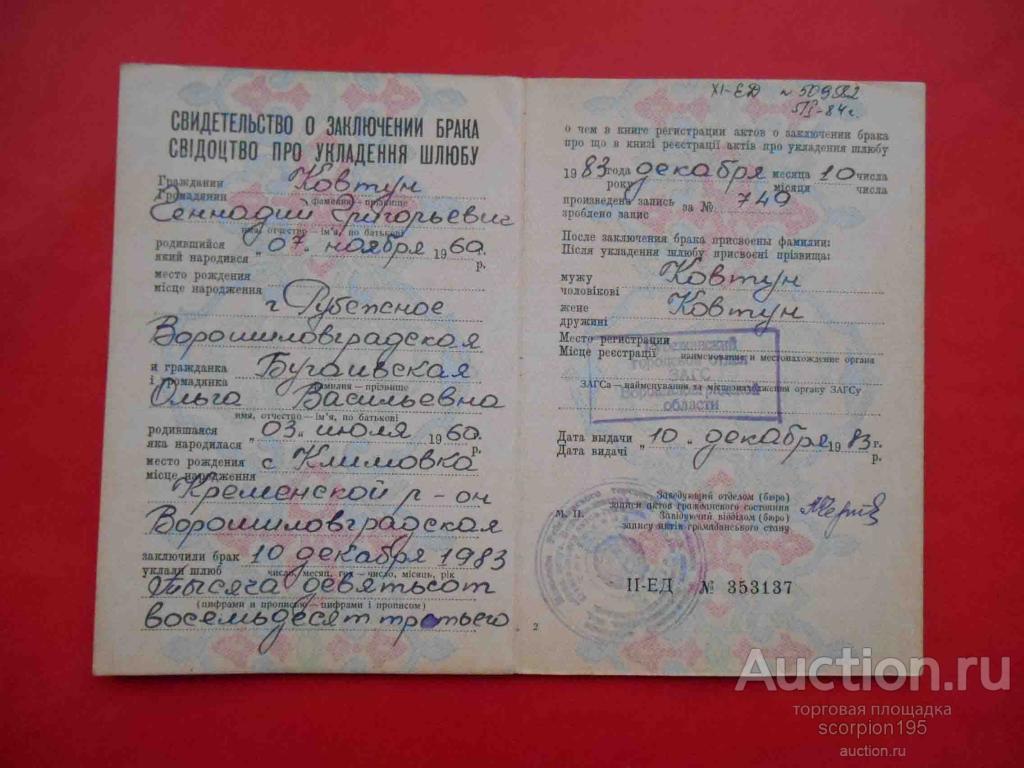 СВИДЕТЕЛЬСТВО О ЗАКЛЮЧЕНИИ БРАКА
СВІДОЦТВО ПРО УКЛАДЕННЯ ШЛЮБУ
Гражданин Ковтун
Громадянин
фамилия — прізвище
Геннадий Григорьевич
имя, отчество — ім'я, по батькові
родившийся 07 ноября 1960 г.
який народився " р.
место рождения
місце народження
г Рубежное
Ворошиловградская
и гражданка Бугаивская
і громадянка
фамилия — прізвище
Ольга Васильевна
имя, отчество — ім'я, по батькові
родившаяся 03 июля 1960 г.
яка народилася " р.
место рождения с Климовка
місце народження
Кременской р-он
Ворошиловградская
заключили брак 10 декабря 1983
уклали шлюб число, месяц, год — число, місяць, рік
тысяча девятьсот
(цифрами и прописью — цифрами і прописом)
восемьдесят третьего
XI-ЕД
84 г.
о чем в книге регистрации актов о заключении брака
про що в книзі реєстрації актів про укладення шлюбу
1983 года декабря месяца 10 числа
року місяця числа
произведена запись за № 749
зроблено запис
После заключения брака присвоены фамилии:
Після укладення шлюбу присвоєні прізвища:
мужу Ковтун
чоловікові
жене Ковтун
дружині
Место регистрации
Місце реєстрації наименование и местонахождение органа
ЗАГСа — найменування та місцезнаходження органу ЗАГСу
городской отдел
ЗАГС
Ворошиловградской
области
Дата выдачи " 10 " декабря 1983 г.
Дата видачі " р.
Заведующий отделом (бюро)
записи актов гражданского состояния
М. П. Завідуючий відділом (бюро)
запису актів громадянського стану
II-ЕД № 353137
2
Auction.ru
торговая площадка
scorpion195
auction.ru